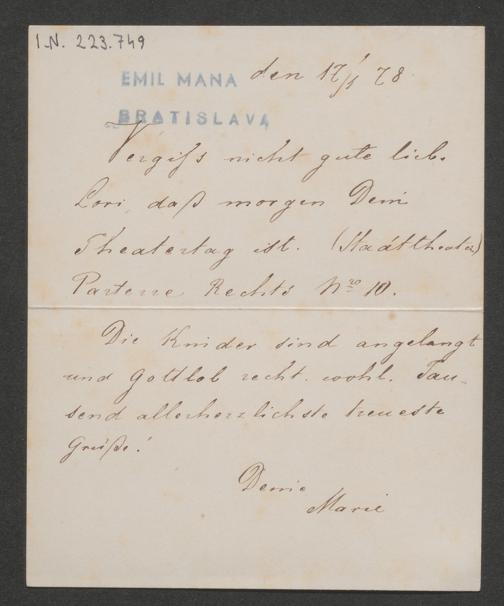 I.N. 223.749
EMIL MANA den 17/1 78.
BRATISLAVA
Vergiß nicht gute liebe
Lori, daß morgen Dein
Theatertag ist. (Stadttheater)
Parterre Rechts No 10.
Die Kinder sind angelangt
und Gottlob recht wohl. Tau-
send allerherzlichste treueste
Grüße!
Deine
Marie